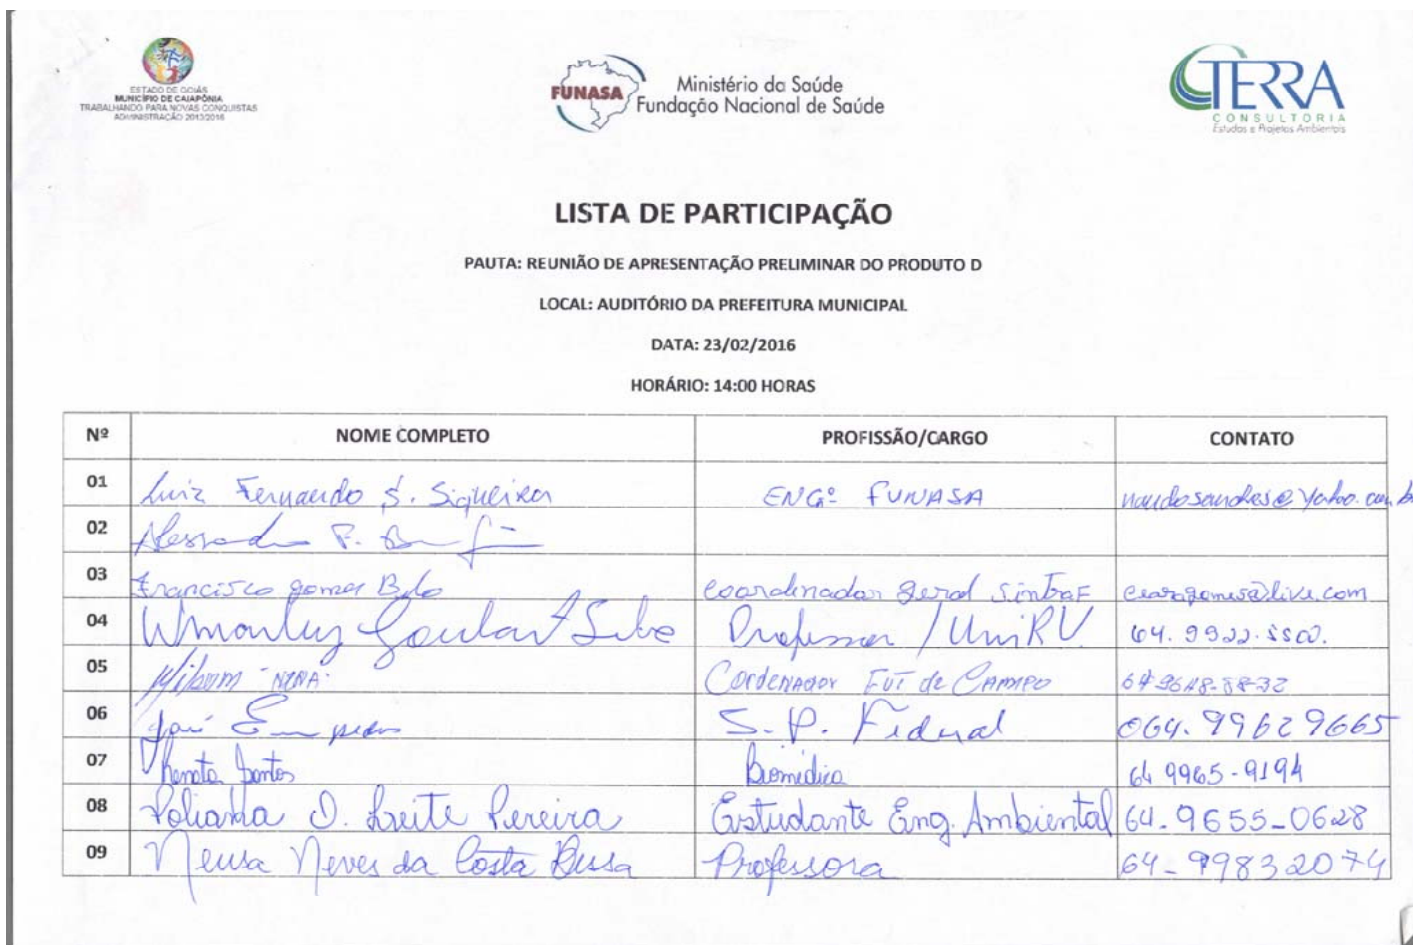 ESTADO DE GOIÁS
MUNICÍPIO DE CAIAPÔNIA
TRABALHANDO PARA NOVAS CONQUISTAS
ADMINISTRAÇÃO 2013/2016
FUNASA
Ministério da Saúde
Fundação Nacional de Saúde
TERRA
CONSULTORIA
Estudos e Projetos Ambientais
LISTA DE PARTICIPAÇÃO
PAUTA: REUNIÃO DE APRESENTAÇÃO PRELIMINAR DO PRODUTO D
LOCAL: AUDITÓRIO DA PREFEITURA MUNICIPAL
DATA: 23/02/2016
HORÁRIO: 14:00 HORAS
Nº NOME COMPLETO PROFISSÃO/CARGO CONTATO
01 Luiz Fernando S. Siqueira ENGº FUNASA
02
03 Francisco gomes coordenador geral Sintraf
04 Goulart Professor / UniRV
05 NENA Cordenador de Campo
06 José S.P. Federal 064. 99629665
07 Renata Santos Biomédica 64 9965-9194
08 Poliana D. Leite Pereira Estudante Eng. Ambiental 64-9655-0628
09 Neusa Neves da Costa Professora 64-99832074